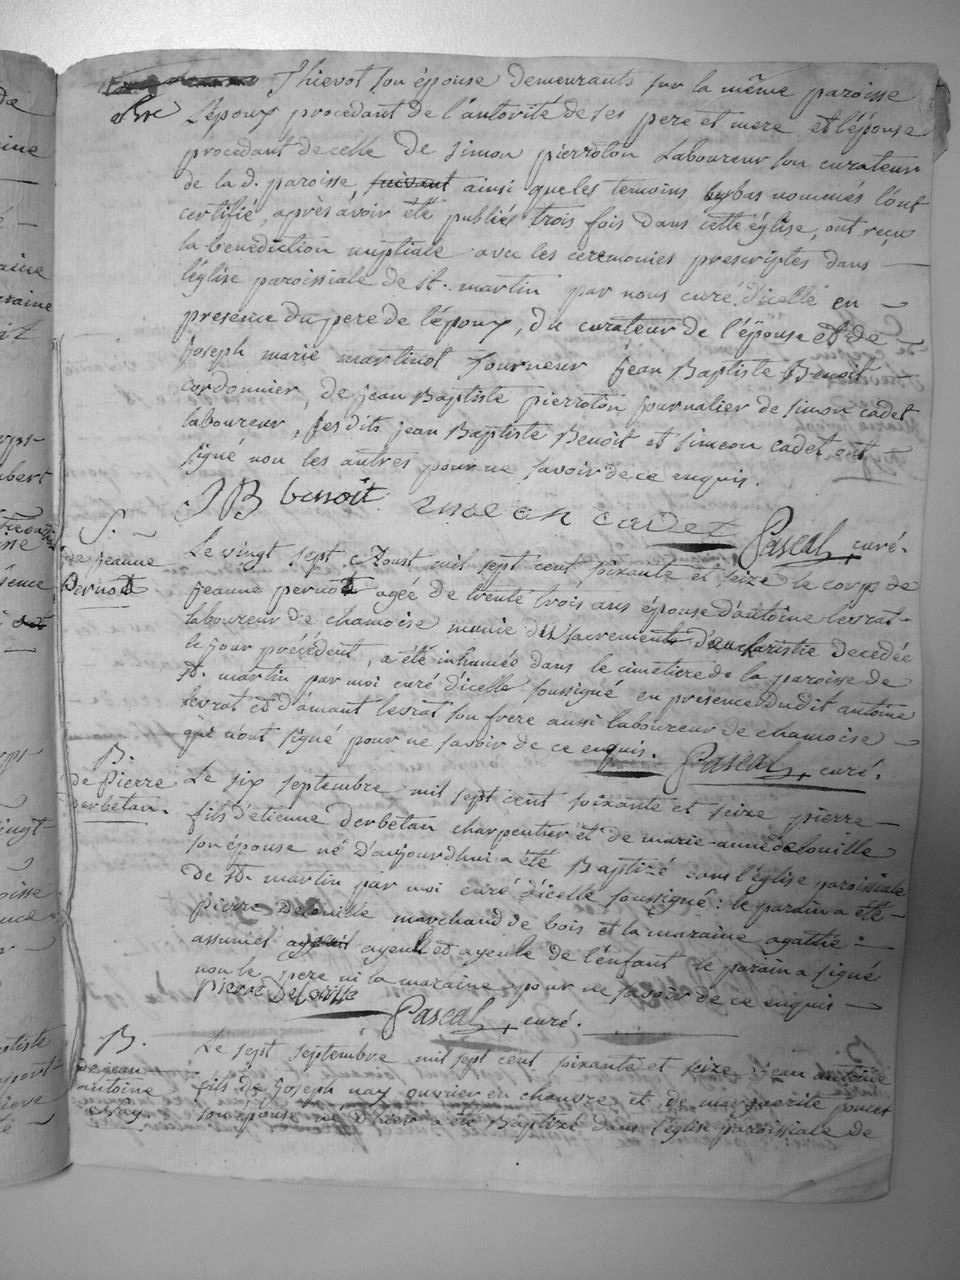 Thievot son épouse demeurants sur la même paroisse
L'époux procédant de l'autorité de ses pere et mere et l'épouse
procédant de celle de simon pierroton Laboureur son curateur
de la d. paroisse, suivant ainsi que les temoins bas nommés l'ont
certifié, après avoir été publiés trois fois dans cette église, ont reçu
la benediction nuptiale avec les ceremonies prescriptes dans
l'église paroissiale de St. martin par nous curé d'icelle en
presence du pere de l'époux, du curateur de l'épouse et de
Joseph marie martinot Tourneur Jean Baptiste Benoit
cordonnier, de jean Baptiste pierroton journalier de simon cadet
laboureur, lesdits jean Baptiste Benoit et simeon cadet ont
signé non les autres pour ne savoir de ce enquis.
J B benoit simean cadet Pascal curé.
S.
de jeanne
Pernot
Le vingt sept Aoust mil sept cent soixante et seize le corps de
jeanne pernot agée de trente trois ans épouse d'antoine levrat
laboureur de chamoise munie du sacrement d'eucharistie decedée
le jour précédent, a été inhumée dans le cimetiere de la paroisse de
St. martin par moi curé d'icelle soussigné en presence dudit antoine
levrat et d'amant levrat son frere aussi laboureur de chamoise
qui n'ont signé pour ne savoir de ce enquis. Pascal curé.
B.
de Pierre
derbetan.
Le six septembre mil sept cent soixante et seize pierre
fils d'etienne derbetan charpentier et de marie anne delouille
son épouse né d'aujourdhui a été Baptizé dans l'église paroissiale
de St. martin par moi curé d'icelle soussigné: le parain a été
pierre delouille marchand de bois et la maraine agathe
assumel ayeul et ayeule de l'enfant le parain a signé
non le pere ni la maraine pour ne savoir de ce enquis
pierre delouille
Pascal curé.
B.
de jean
antoine
Nay
Le sept septembre mil sept cent soixante et seize jean antoine
fils de joseph nay ouvrier en chanvre et de marguerite poncet
son épouse né d'hier a été Baptizé dans l'église paroissiale de